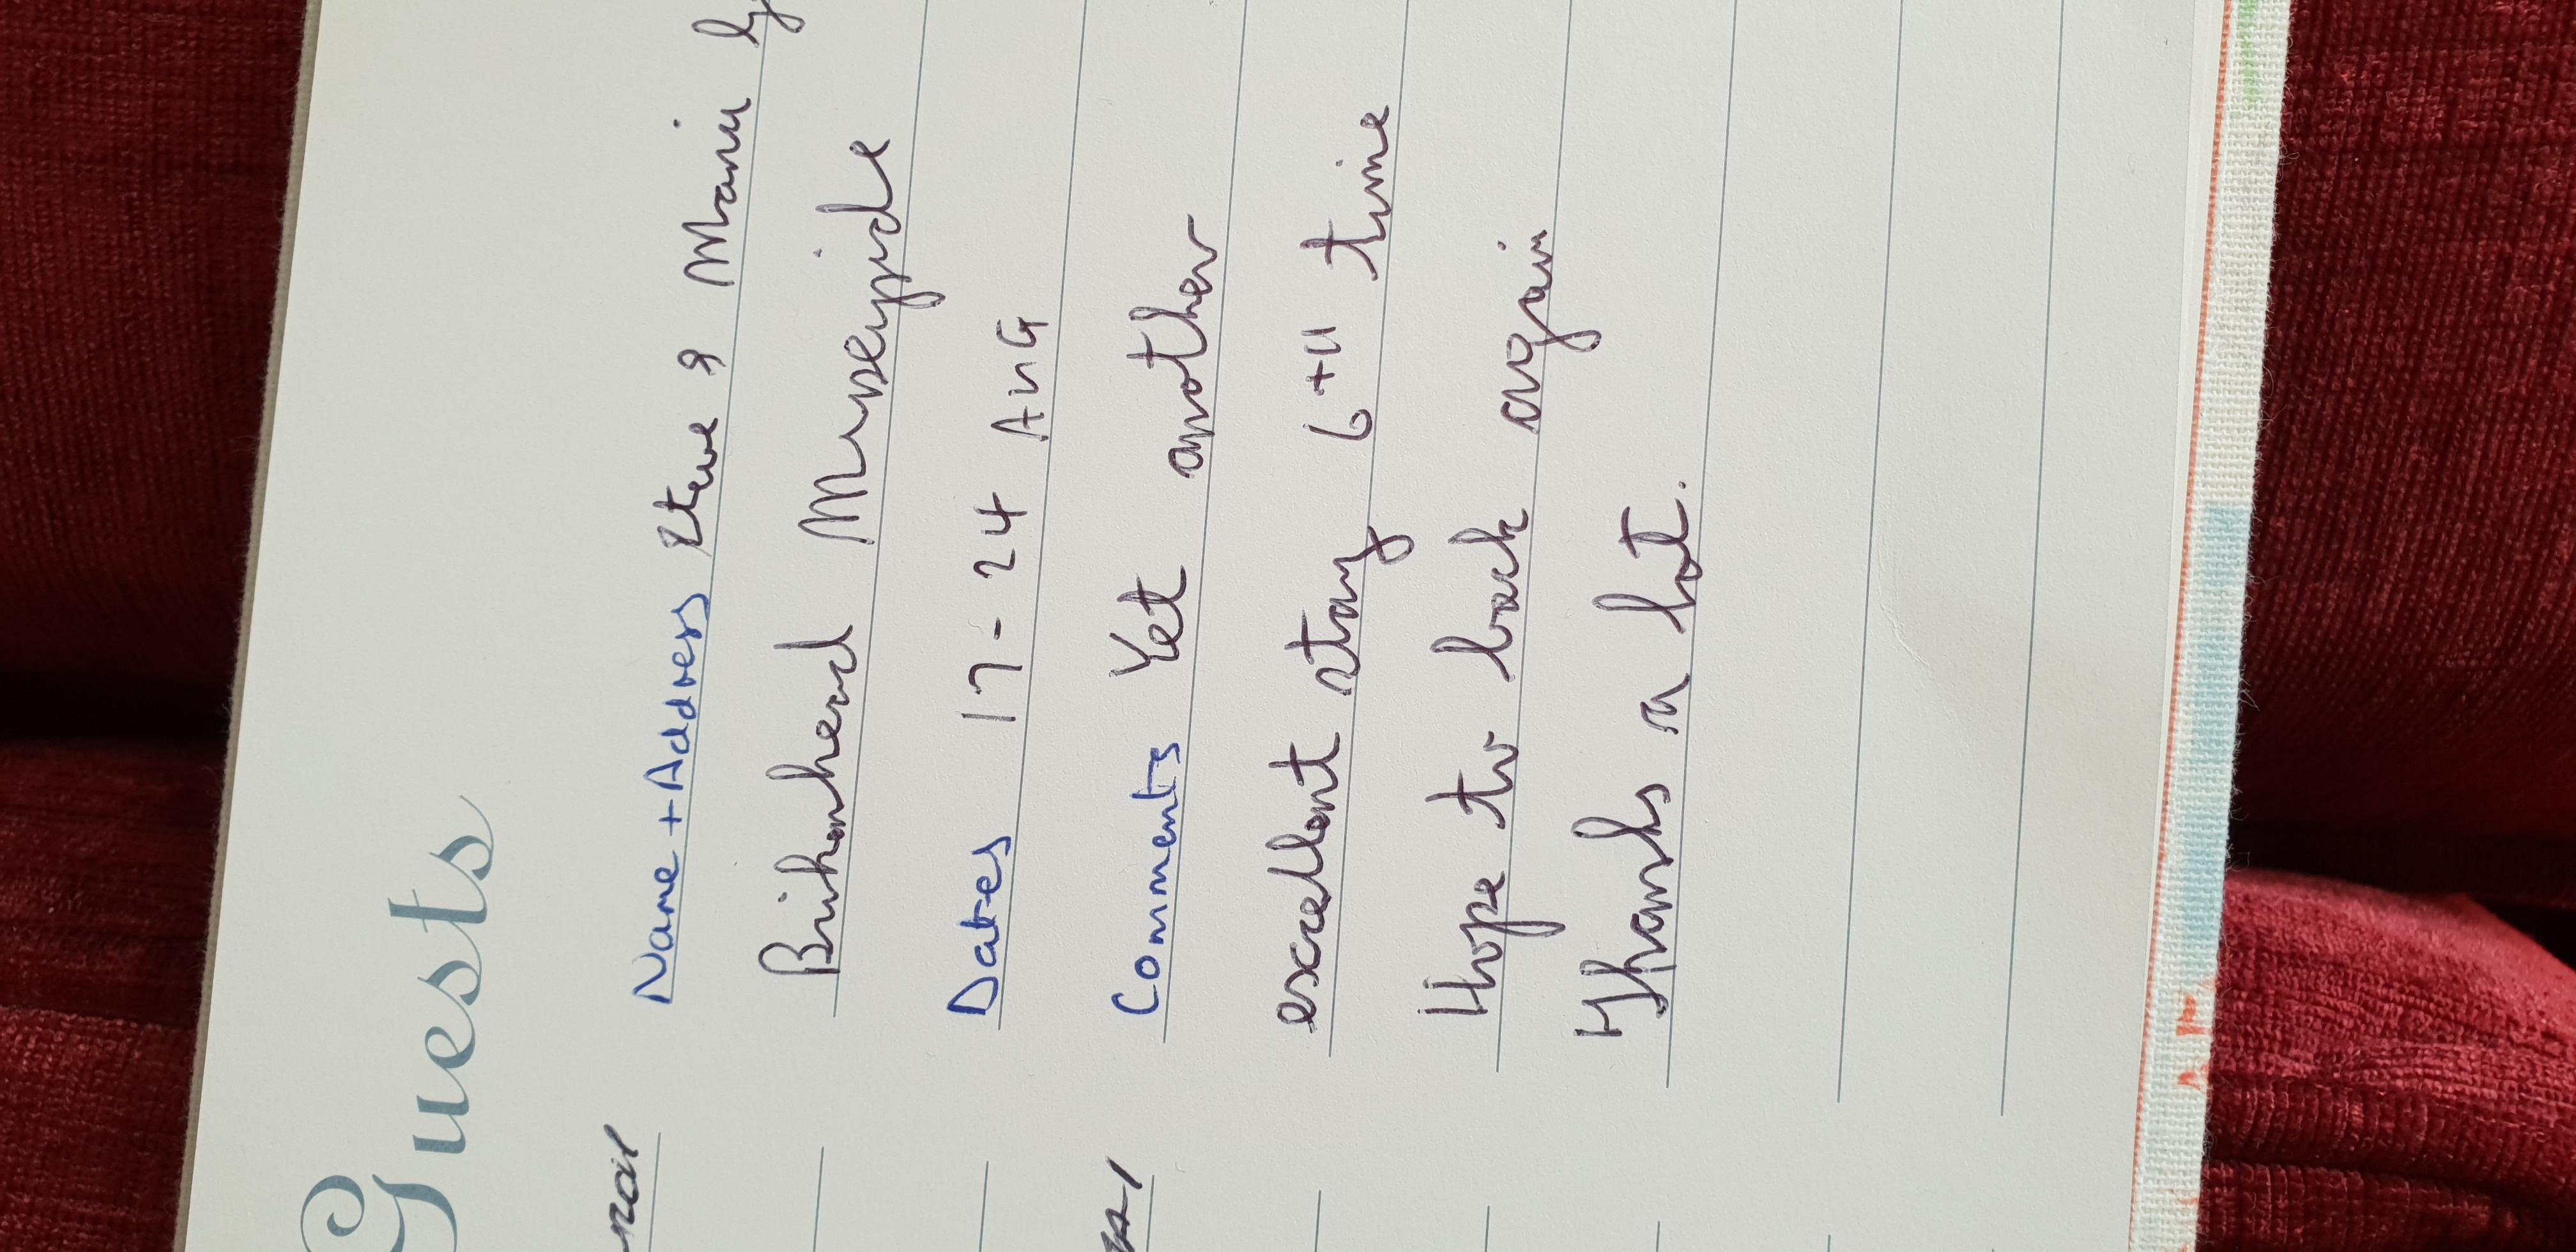 Guests
Name + Address Steve & Marin
Birkenhead Merseyside
Dates 17 - 24 AUG
Comments Yet another
excellent stay 6th time
Hope to back again
Thanks a lot.